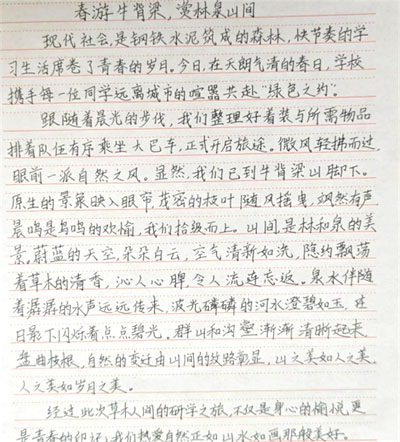 春游牛背梁，赏林泉山间
现代社会是钢铁水泥筑成的森林，快节奏的学
习生活席卷了青春的岁月。今日，在天朗气清的春日，学校
携手每一位同学远离城市的喧嚣共赴“绿色之约”。
跟随着晨光的步伐，我们整理好着装与所需物品
排着队伍有序乘坐大巴车，正式开启旅途。微风轻拂而过，
眼前一派自然之风。显然，我们已到牛背梁山脚下。
原生的景象映入眼帘茂密的枝叶随风摇曳，飒然有声
晨鸣是鸟鸣的欢愉，我们拾级而上。山间是林和泉的美
景，蔚蓝的天空，朵朵白云，空气清新如洗，隐约飘荡
着草木的清香，沁人心脾，令人流连忘返。泉水伴随
着潺潺的水声远远传来，波光磷磷的河水澄碧如玉，在
日影下闪烁着点点碧光，群山和沟壑渐渐清晰起来，
盘曲枝根，自然的变迁由山间的纹路彰显，山之美如人之美，
人之美如岁月之美。
经过此次草木人间的研学之旅，不仅是身心的愉悦更
是青春的印记，我们热爱自然正如山水如画那般美好。